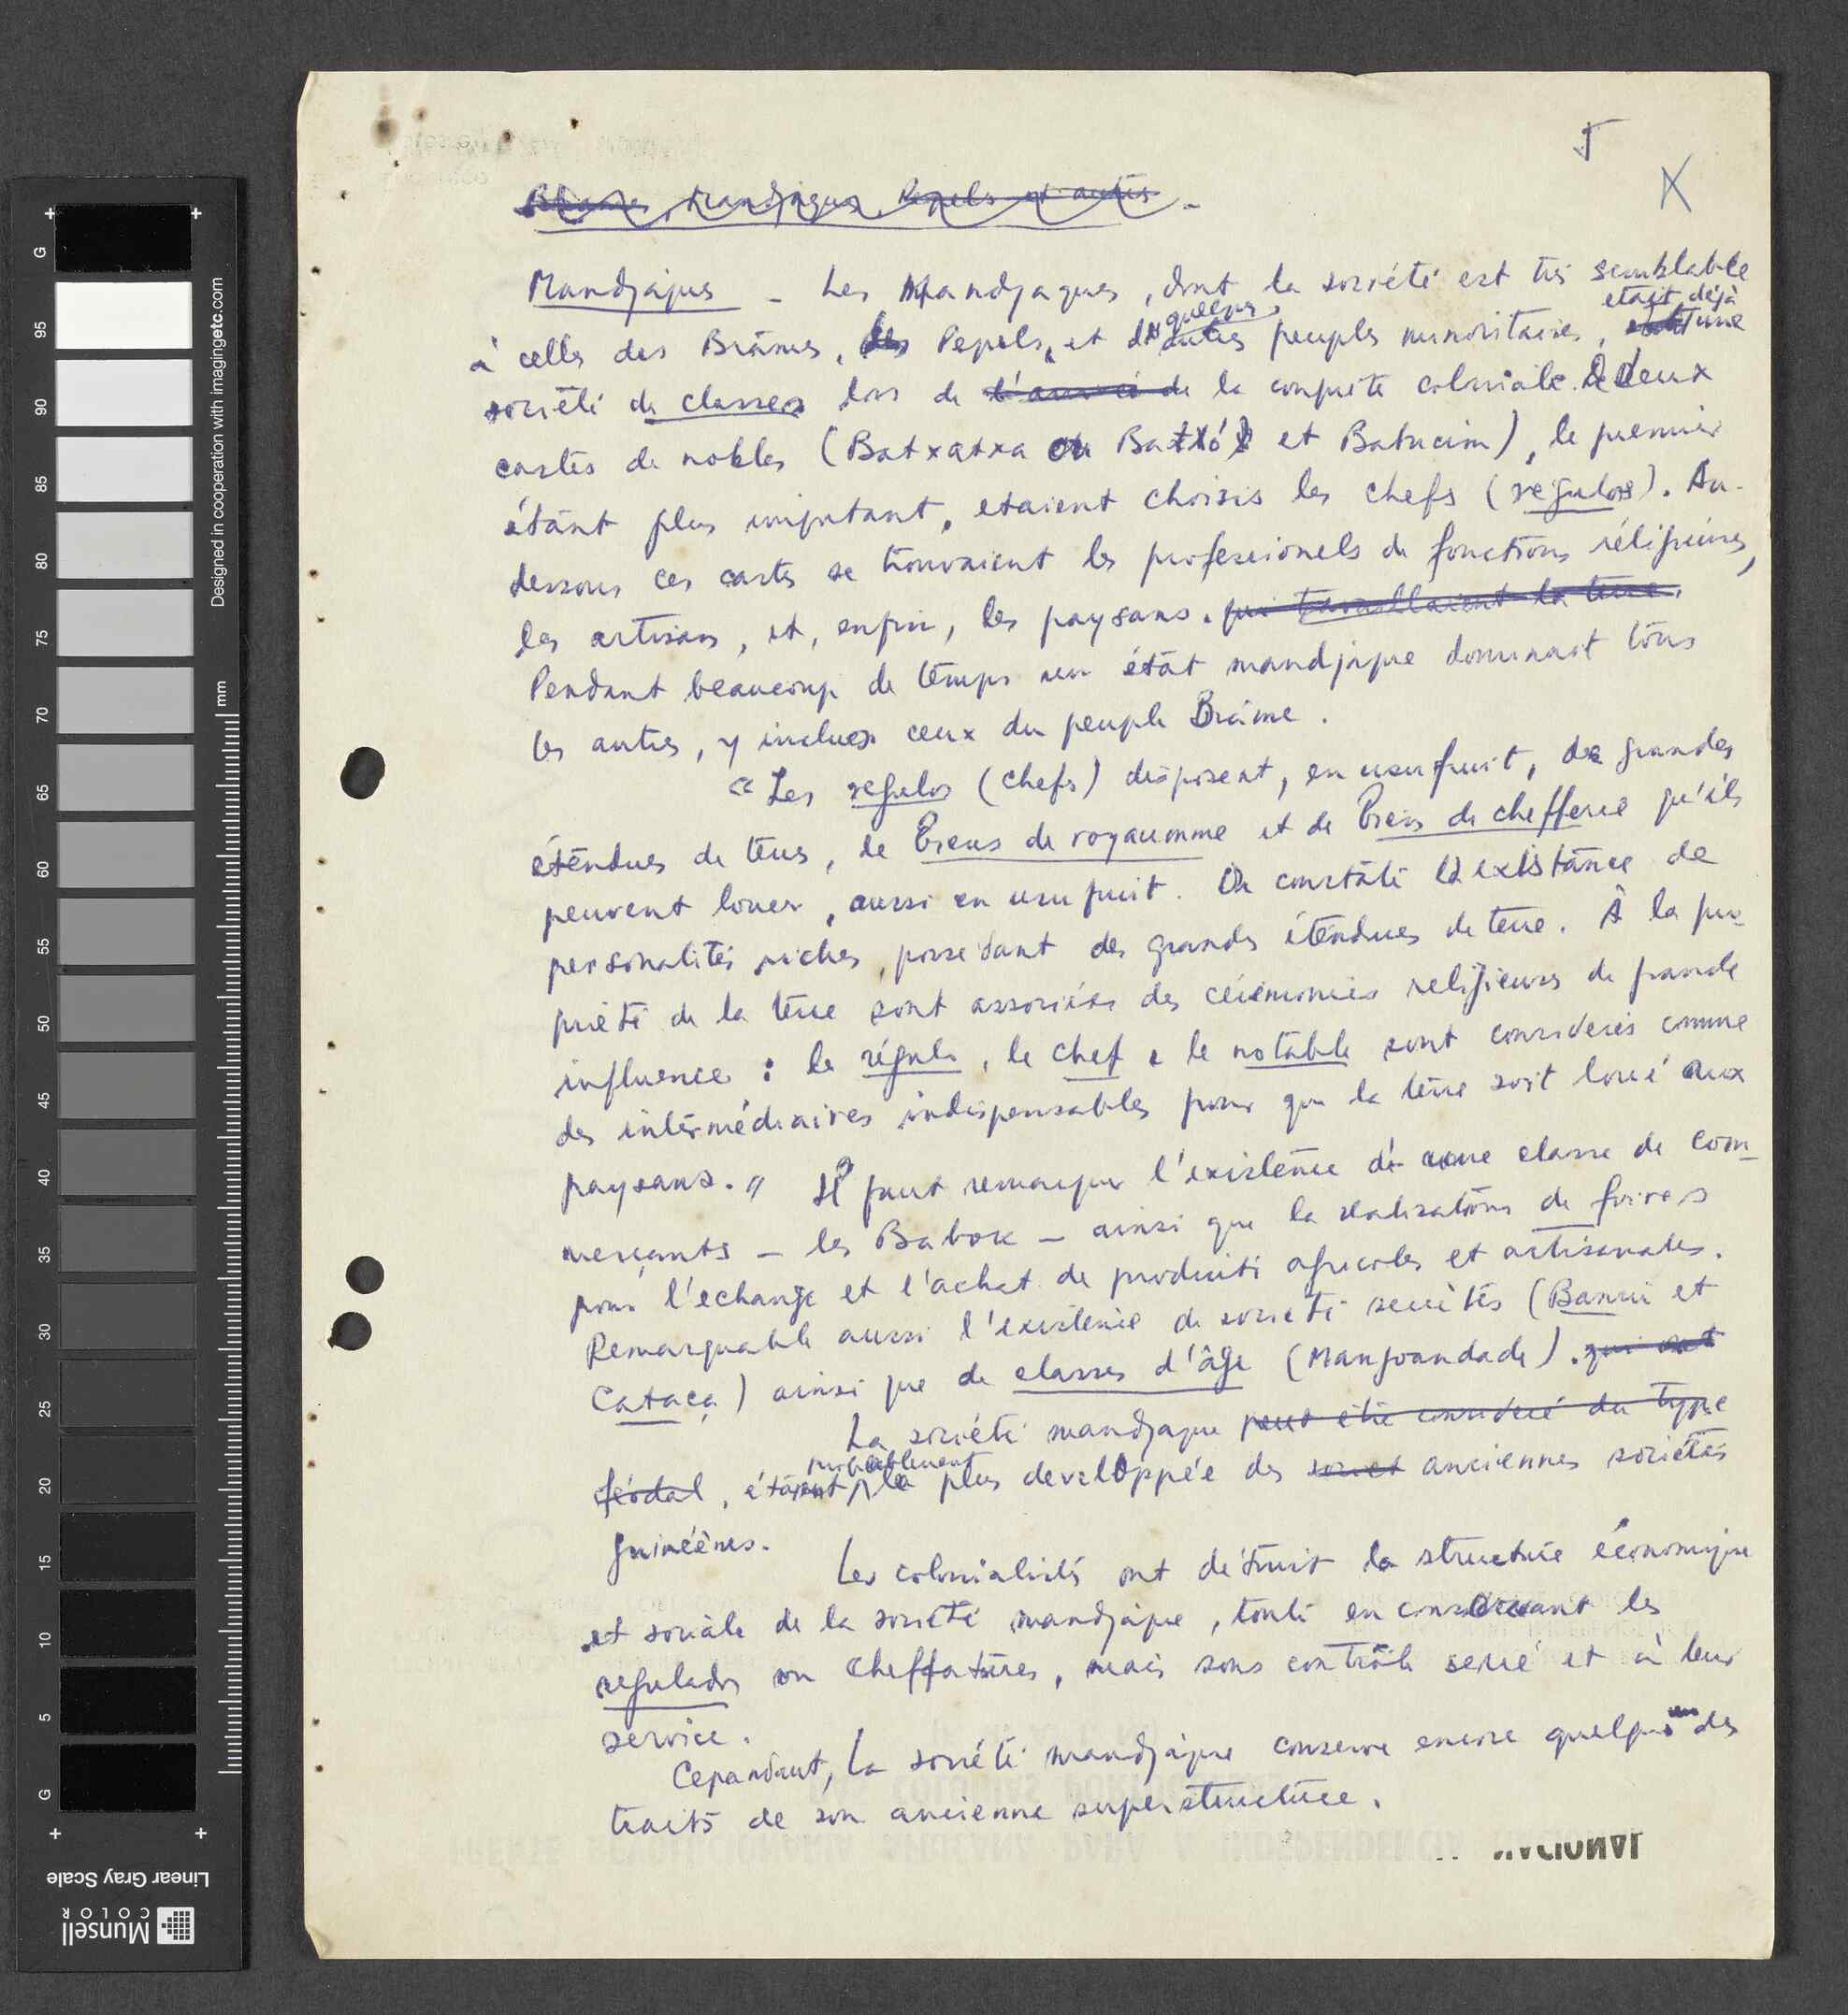 5
X
Brames, Mandjaques, Pepels et autres -
Mandjaques - Les Mandjaques, dont la société est très semblable
à celle des Brâmes, des Pepels, et d'autres quelques peuples minoritaires, était déjà une
société de classes lors de l'arrivée de la conquête coloniale. De deux
castes de nobles (Batxatxa ou Batxó et Babucim), le premier
étant plus important, etaient choisis les chefs (regulos). Au-
dessous ces castes se trouvaient les professionels de fonctions réligieuses,
les artisans, et, enfin, les paysans. qui travaillaient la terre.
Pendant beaucoup de temps un état mandjaque dominait tous
les autres, y inclues ceux du peuple Brâme.
"Les regulos (chefs) disposent, en usufruit, de grandes
étendues de terres, de biens de royaumme et de biens de chefferie qu'ils
peuvent louer, aussi en usufruit. On constate l'existance de
personalités riches, possedant des grandes étendues de terre. À la pro-
prieté de la terre sont associées des cérémonies religieuses de grande
influence : le régulo, le chef e le notable sont considerés comme
des intérmédiaires indispensables pour que la terre soit loué aux
paysans." Il faut remarquer l'existence d'une classe de com-
merçants - les Babok - ainsi que la realisation de foires
pour l'echange et l'achat de produits agricoles et artisanales.
Remarquable aussi l'existence de societé secrètes (Banrui et
Cataca) ainsi que de classes d'âge (Manjoandade). qui est
La société mandjaque peut être consideré du type
féodal, étaient probablement la plus developpée des societ anciennes sociétés
guinéénes.
Les colonialistes ont détruit la structure économique
et sociale de la société mandjaque, toute en conservant les
regulados ou cheffatures, mais sous contrôle serré et à leur
service.
Cependant, la société mandjaque conserve encore quelques uns des
traits de son ancienne superstructure.
G
95
90
85
80
75
70
65
60
55
50
45
40
35
30
25
20
15
10
5
G
mm
Designed in cooperation with imagingetc.com
Linear Gray Scale
Munsell
COLOR